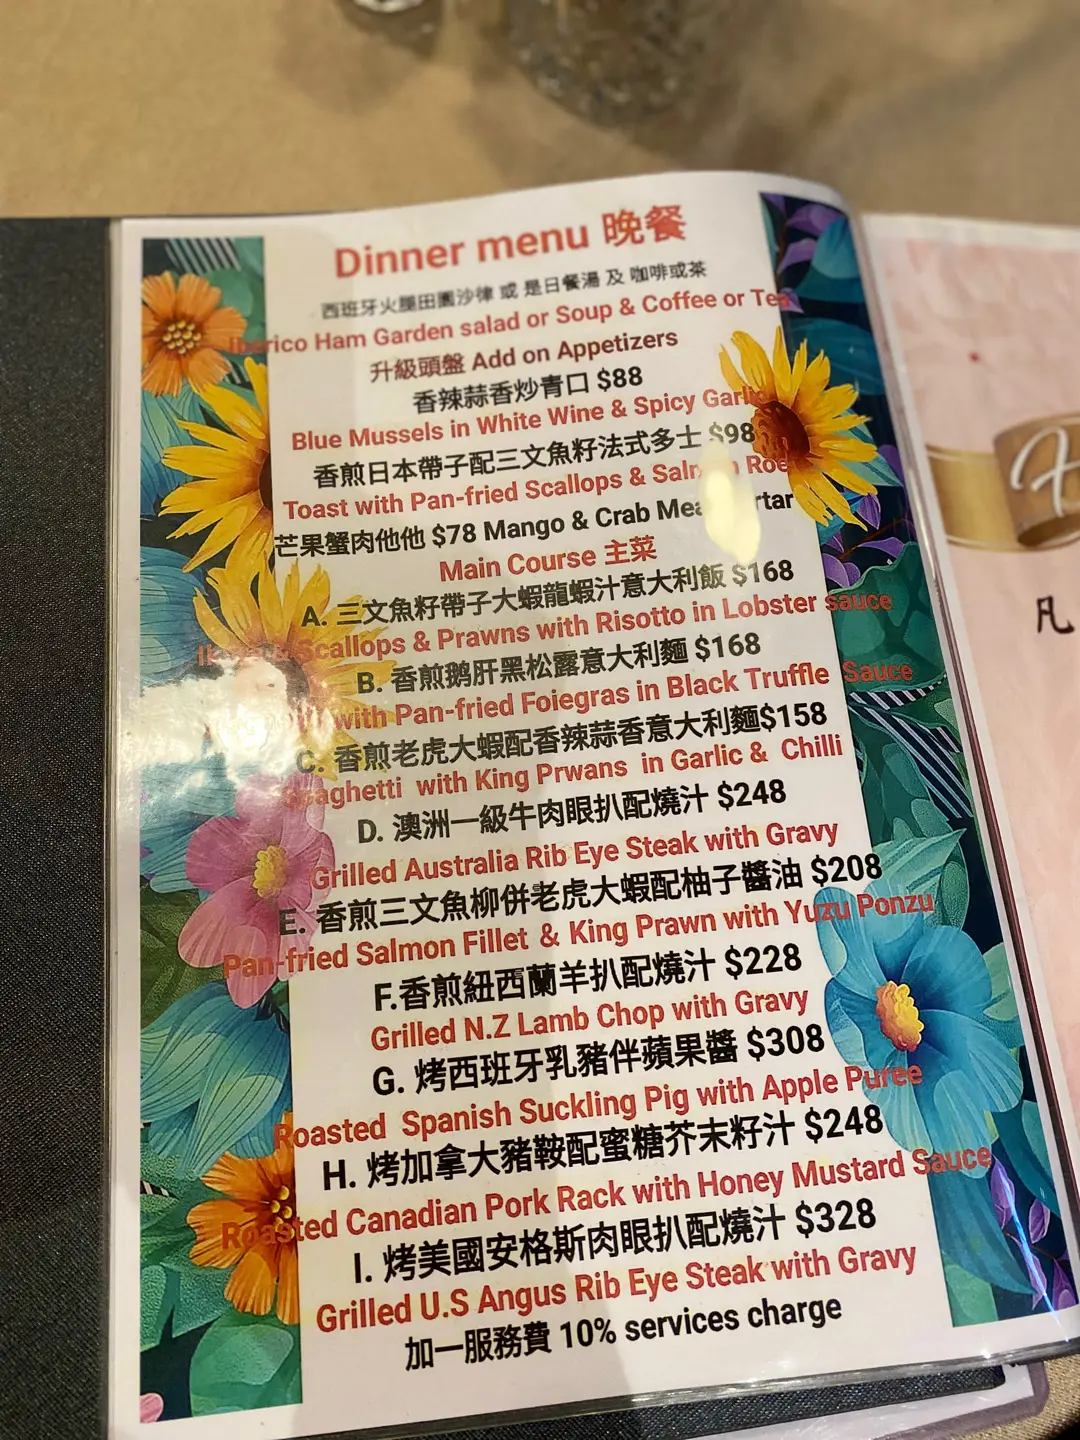 Dinner menu 晚餐
西班牙火腿田園沙律 或 是日餐湯 及 咖啡或茶
Iberico Ham Garden salad or Soup & Coffee or Tea
升級頭盤 Add on Appetizers
香辣蒜香炒青口 $88
Blue Mussels in White Wine & Spicy Garlic
香煎日本帶子配三文魚籽法式多士 $98
Toast with Pan-fried Scallops & Salmon Roe
芒果蟹肉他他 $78 Mango & Crab Meat Tartar
Main Course 主菜
A. 三文魚籽帶子大蝦龍蝦汁意大利飯 $168
Scallops & Prawns with Risotto in Lobster sauce
B. 香煎鵝肝黑松露意大利麵 $168
with Pan-fried Foiegras in Black Truffle Sauce
C. 香煎老虎大蝦配香辣蒜香意大利麵$158
Spaghetti with King Prwans in Garlic & Chilli
D. 澳洲一級牛肉眼扒配燒汁 $248
Grilled Australia Rib Eye Steak with Gravy
E. 香煎三文魚柳併老虎大蝦配柚子醬油 $208
Pan-fried Salmon Fillet & King Prawn with Yuzu Ponzu
F.香煎紐西蘭羊扒配燒汁 $228
Grilled N.Z Lamb Chop with Gravy
G. 烤西班牙乳豬伴蘋果醬 $308
Roasted Spanish Suckling Pig with Apple Puree
H. 烤加拿大豬鞍配蜜糖芥末籽汁 $248
Roasted Canadian Pork Rack with Honey Mustard Sauce
I. 烤美國安格斯肉眼扒配燒汁 $328
Grilled U.S Angus Rib Eye Steak with Gravy
加一服務費 10% services charge
凡